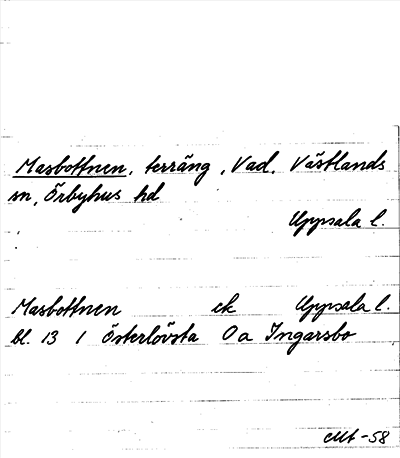 Masbottnen, terräng, Vad, Västlands
sn, Örbyhus hd
Uppsala l.
Masbottnen ek Uppsala l.
bl. 13 1 Österlövsta Oa Ingarsbo
-58